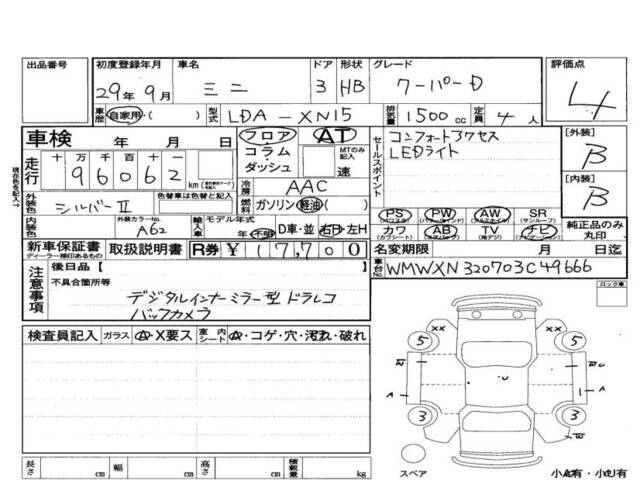 出品番号 初度登録年月 車名 ドア 形状 グレード 評価点
29年 9月 ミニ 3 HB クーパーD 4
車歴 自家用・( ) 型式 LDA-XN15 排気量 1500cc 定員 4人
車検 年 月 日 フロア AT セールスポイント コンフォートアクセス [外装]
コラム MTのみ記入 LEDライト B
走行 十万千百十一 ダッシュ 速
96062 km [内装]
冷房 AAC B
外装色 シルバーⅡ 色替車は色替と記入 燃料 ガソリン 軽油 ( ) PS PW AW SR
(パワステ) (パワーウィンドウ) (アルミホイル) (サンルーフ)
内装色 外装カラーNo. A62 輸入車 モデル年式 年 不明 D車・並 右H・左H カワ AB TV ナビ 純正品のみ丸印
(カワシート) (エアバッグ) (地デジ) (ナビゲーション)
新車保証書 取扱説明書 R券 ¥ 17,700 名変期限 月 日迄
ディーラー捺印あるもの
車台No. WMWXN320703C49666
注意事項 後日品【 】 ロック車
不具合箇所等
デジタルインナーミラー型 ドラレコ
バックカメラ
検査員記入 ガラス A・X要ス 室内シート A・コゲ・穴・汚れ・破れ
XX XX
5 5
W W U
U
A 1 A
3 3
長さ cm 幅 cm 高さ cm 積載量 kg スペア 小A有・小U有
現在の色を記入→